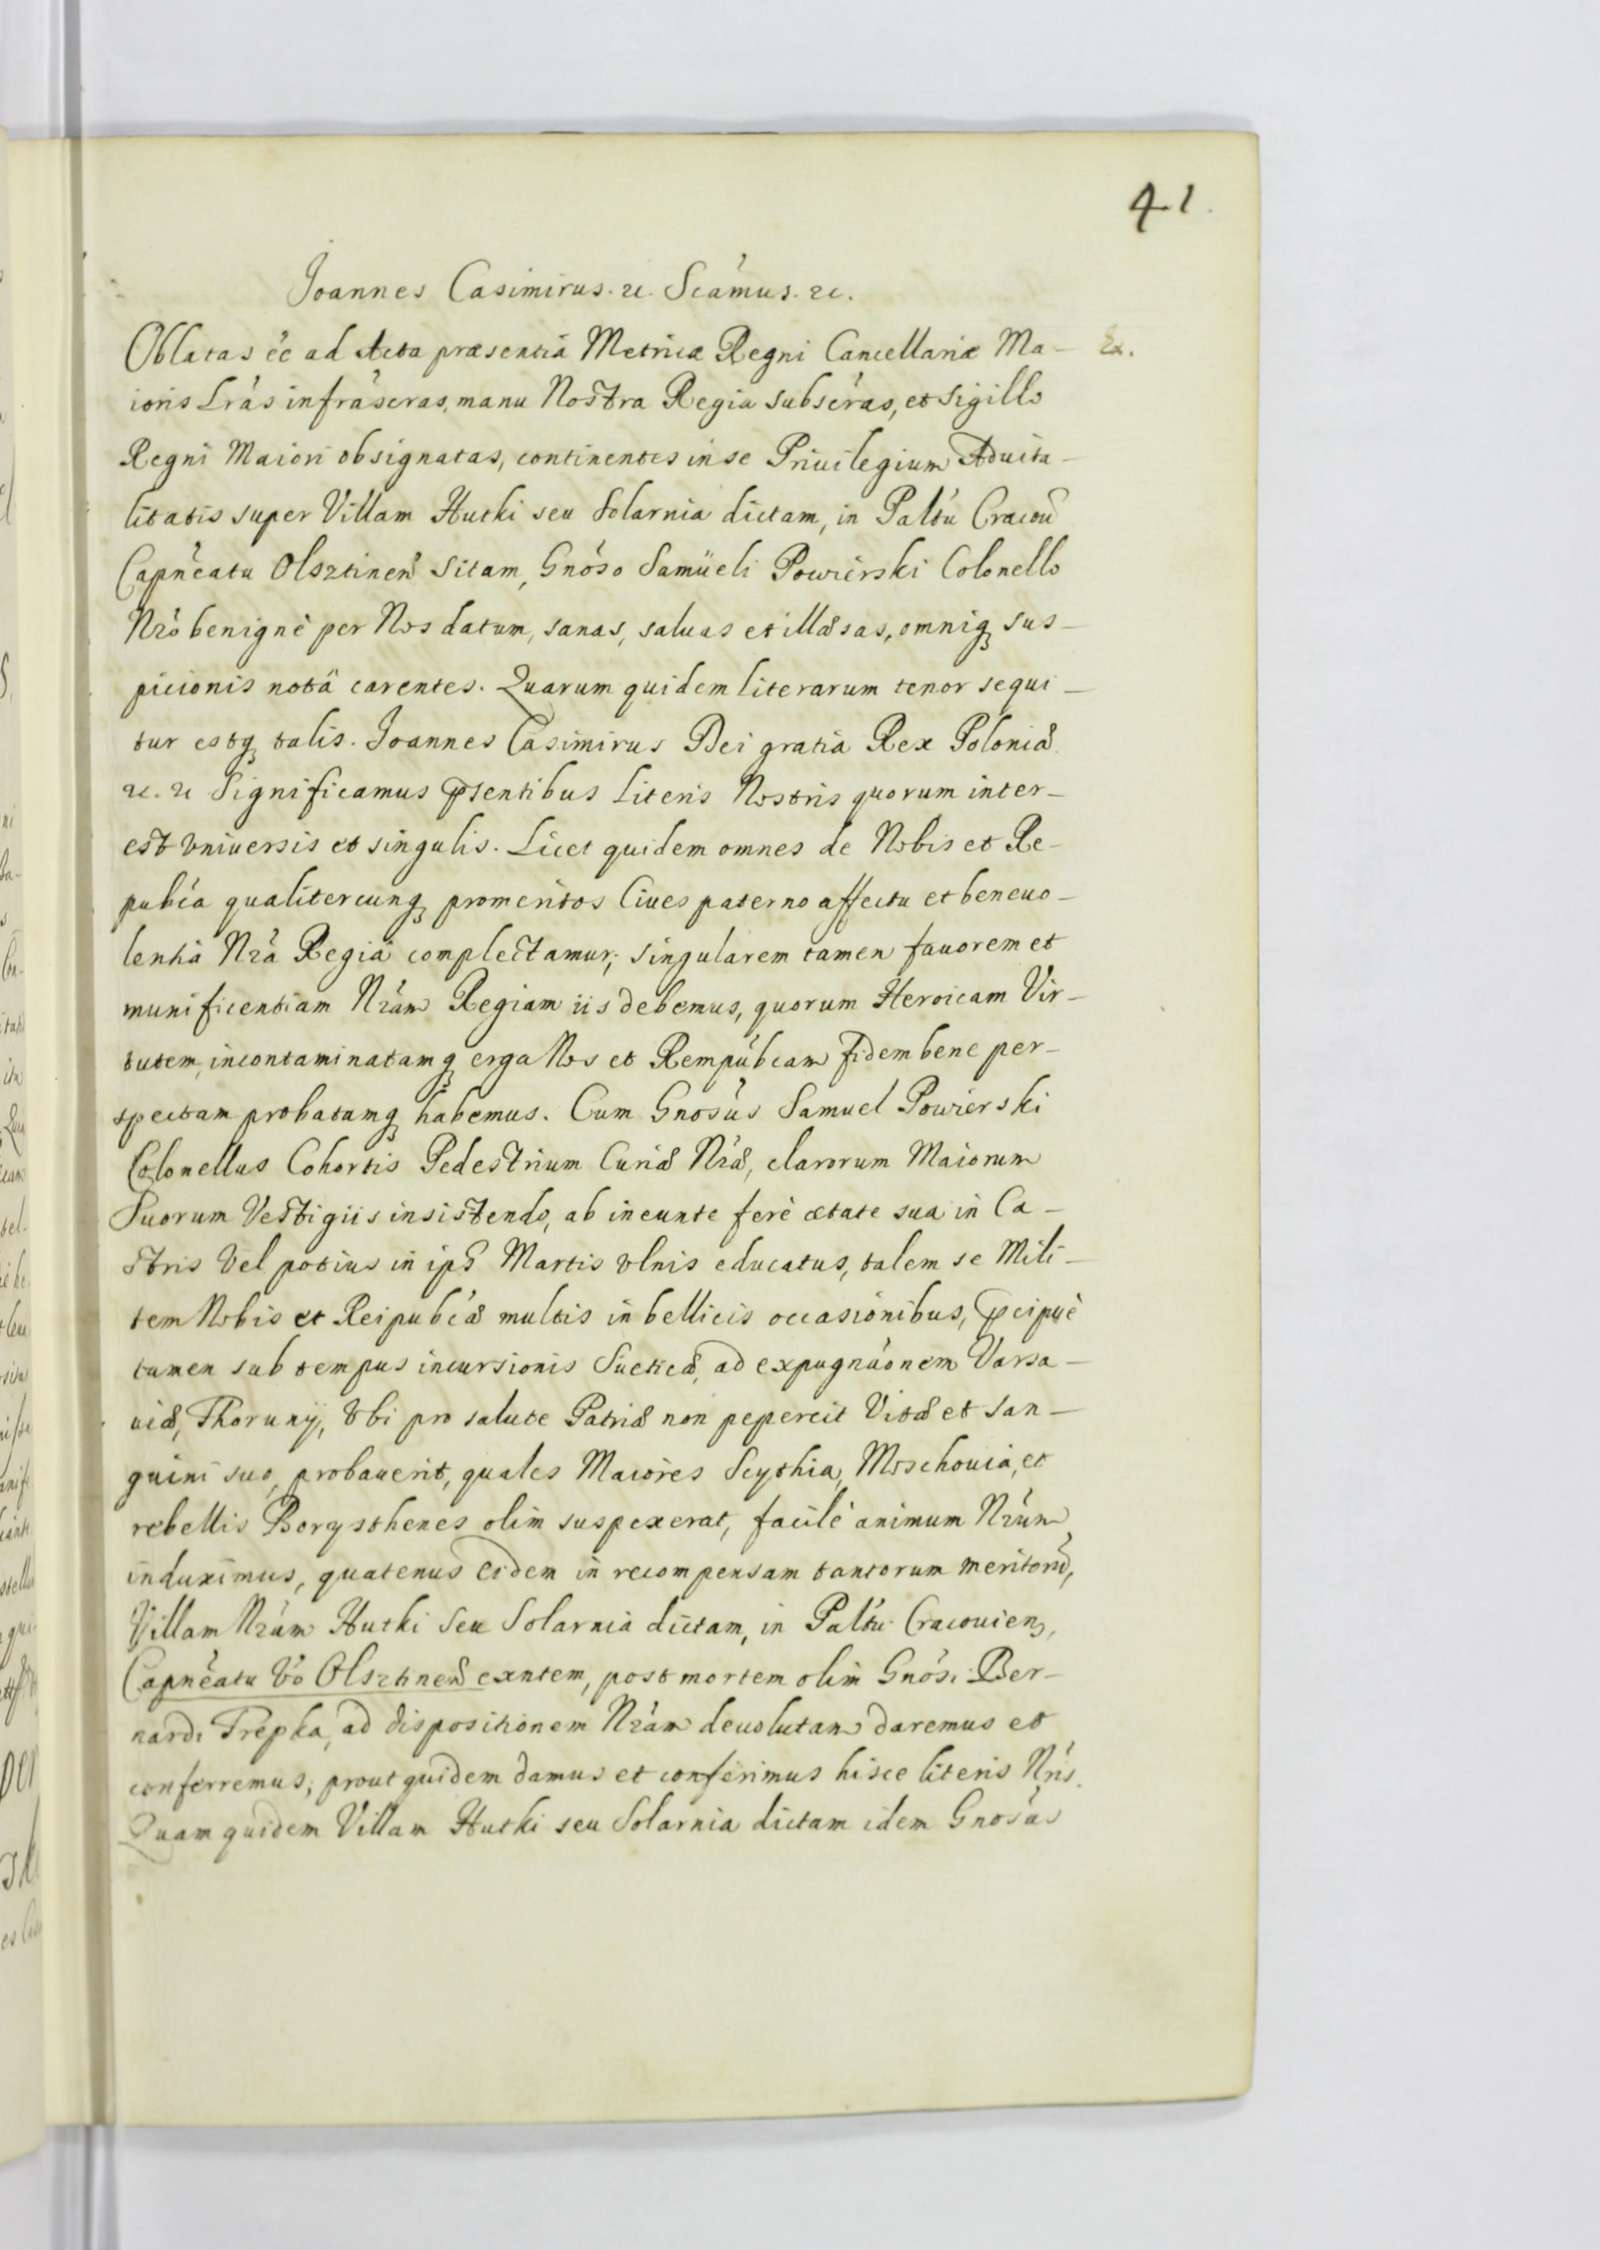 41.
Joannes Casimirus. &c. Scámus. &c.
Oblatas éé ad Acta præsentia Metricæ Regni Cancellariæ Ma-
Ex.
ioris Lrás infrascras, manu Nostra Regia subscras, et sigillo
Regni Maiori obsignatas, continentes in se Priuilegium Aduita-
litatis super Villam Hutki seu Solarnia dictam, in Paltu Cracou
Capneatu Olsztinen sitam, Gnóso Samüeli Powierski Colonello
Nró benignè per Nos datum, sanas, saluas et illæsas, omniq sus-
picionis notâ carentes. Quarum quidem literarum tenor sequi-
tur estq talis. Joannes Casimirus Dei gratia Rex Poloniæ
&c. &c Significamus pŝentibus literis Nostris quorum inter-
est vniuersis et singulis. Licet quidem omnes de Nobis et Re-
pubca qualitercunq promeritos Ciues paterno affectu et beneuo-
lentiâ Nrâ Regiâ complectamur; singularem tamen fauorem et
munificentiam Nrám Regiam iis debemus, quorum Heroicam Vir-
tutem, incontaminatamq erga Nos et Rempúbcam fidem bene per-
spectam probatamq habemus. Cum Gnosús Samuel Powierski
Colonellus Cohortis Pedestrium Curiæ Nræ, clarorum Maiorum
Suorum Vestigiis insistendo, ab ineunte ferè ætate sua in Ca-
stris Vel potius in ips Martis vlnis educatus, talem se Mili-
tem Nobis et Reipubcæ multis in bellicis occasionibus, pcipuè
tamen sub tempus incursionis Sueticæ, ad expugnáonem Varsa-
uiæ, Thorunij, Vbi pro salute Patriæ non pepercit Vitæ et san-
guini suo, probauerit, quales Maiores Scythia, Moschouia, et
rebellis Borysthenes olim suspexerat, facilè animum Nrúm
induximus, quatenus eidem in recompensam tantorum meritorú,
Villam Nrám Hutki seu Solarnia dictam, in Paltu Cracouien,
Capneatu Vo Olsztinen exntem, post mortem olim Gnósi Ber-
nardi Trepka, ad dispositionem Nrám deuolutam daremus et
conferremus, prout quidem damus et conferimus hisce literis Nris.
Quam quidem Villam Hutki seu Solarnia dictam idem Gnosús